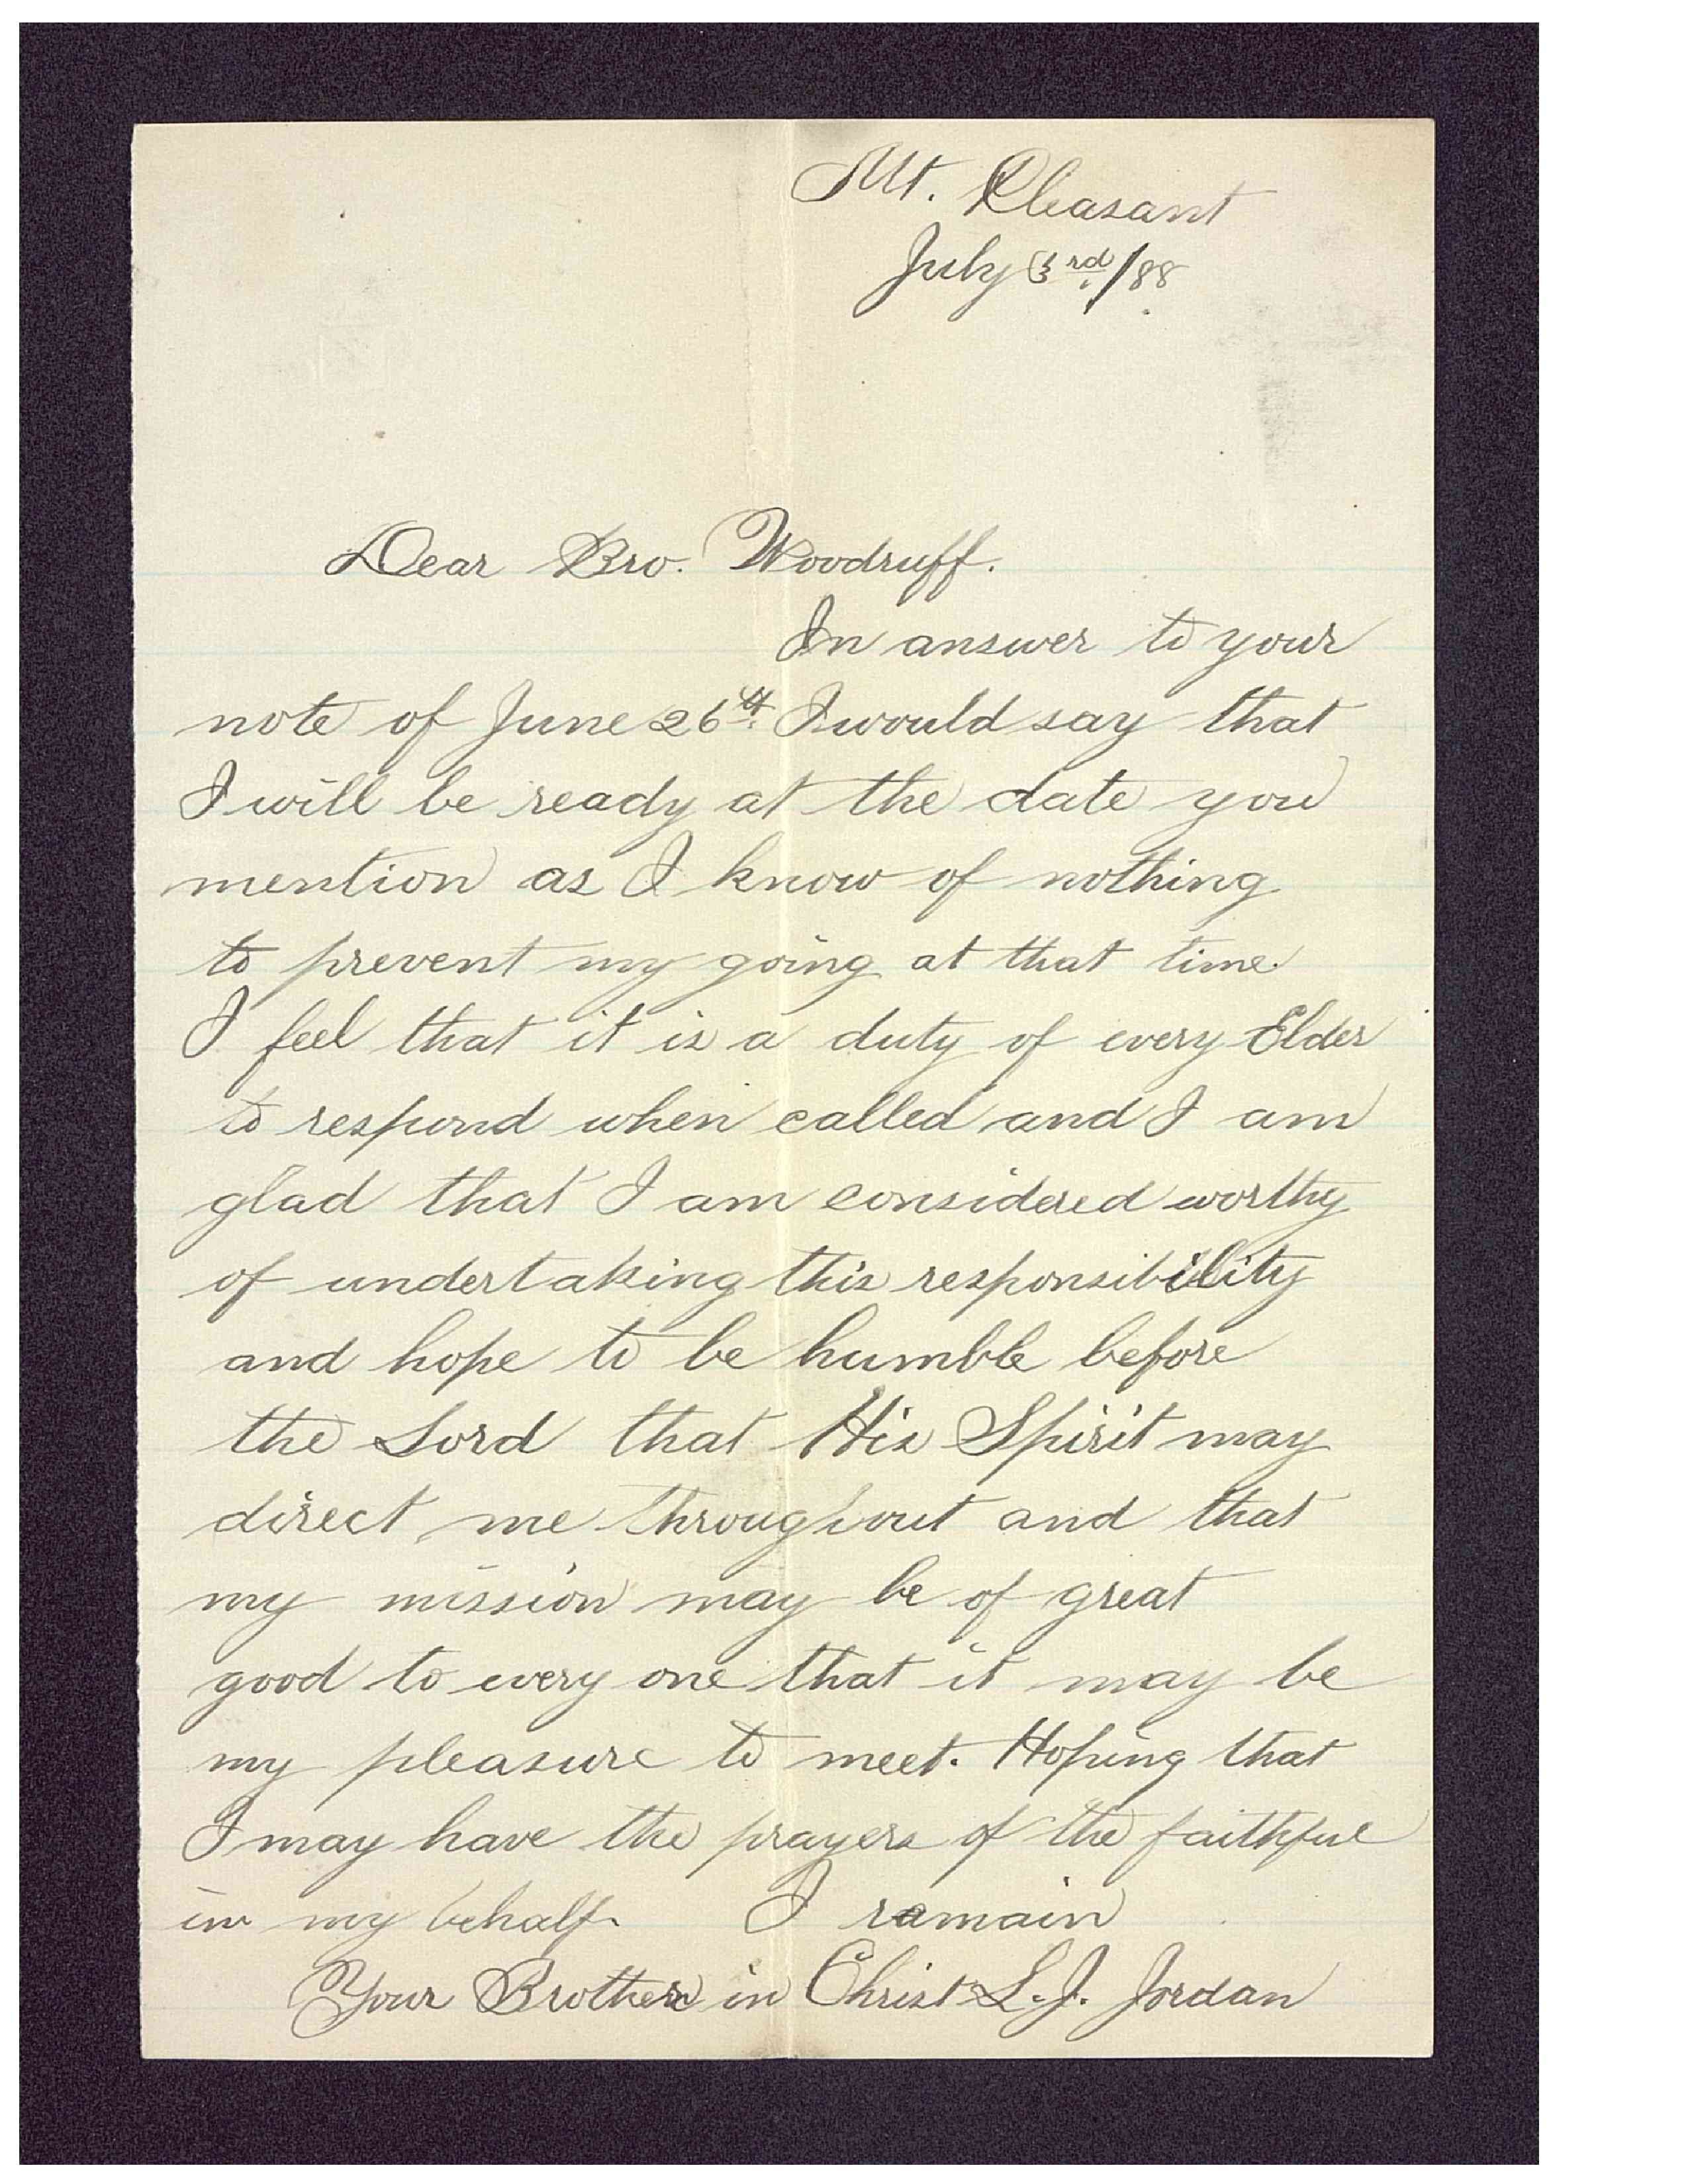 Mt. Pleasant
July 3rd./88.
Dear Bro. Woodruff.
In answer to your
note of June 26th. I would say that
I will be ready at the date you
mention as I know of nothing
to prevent my going at that time.
I feel that it is a duty of every Elder
to respond when called and I am
glad that I am considered worthy
of undertaking this responsibility
and hope to be humble before
the Lord that His Spirit may
direct me throughout and that
my mission may be of great
good to every one that it may be
my pleasure to meet. Hoping that
I may have the prayers of the faithful
in my behalf. I remain
Your Brother in Christ L.J. Jordan